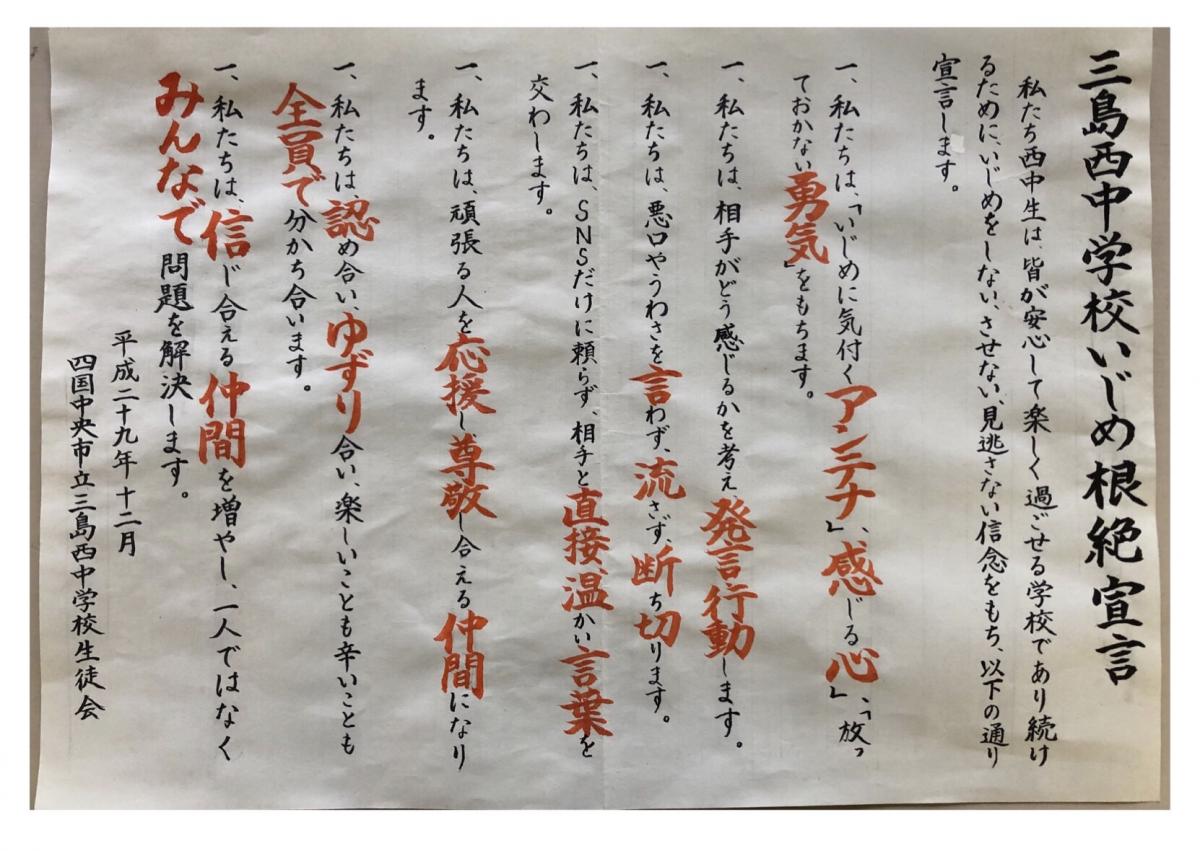 三島西中学校いじめ根絶宣言
私たち西中生は、皆が安心して楽しく過ごせる学校であり続け
るために、いじめをしない、させない、見逃さない信念をもち、以下の通り
宣言します。
一、私たちは、「いじめに気付くアンテナ」、「感じる心」、「放っ
ておかない勇気」をもちます。
一、私たちは、相手がどう感じるかを考え、発言・行動します。
一、私たちは、悪口やうわさを言わず、流さず、断ち切ります。
一、私たちは、SNSだけに頼らず、相手と直接、温かい言葉を
交わします。
一、私たちは、頑張る人を応援し、尊敬し合える仲間になり
ます。
一、私たちは、認め合い、ゆずり合い、楽しいことも辛いことも
全員で分かち合います。
一、私たちは、信じ合える仲間を増やし、一人ではなく
みんなで問題を解決します。
平成二十九年十二月
四国中央市立三島西中学校生徒会